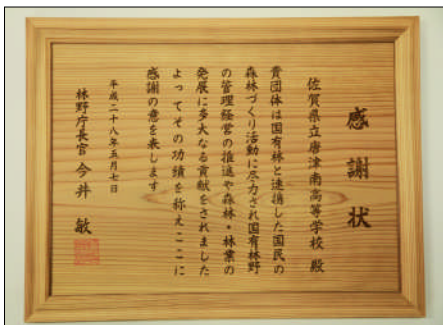 感謝状
佐賀県立唐津南高等学校 殿
貴団体は国有林と連携した国民の
森林づくり活動に尽力され国有林野
の管理経営の推進や森林・林業の
発展に多大なる貢献をされました
よってその功績を称えここに
感謝の意を表します
平成二十八年五月七日
林野庁長官 今井 敏